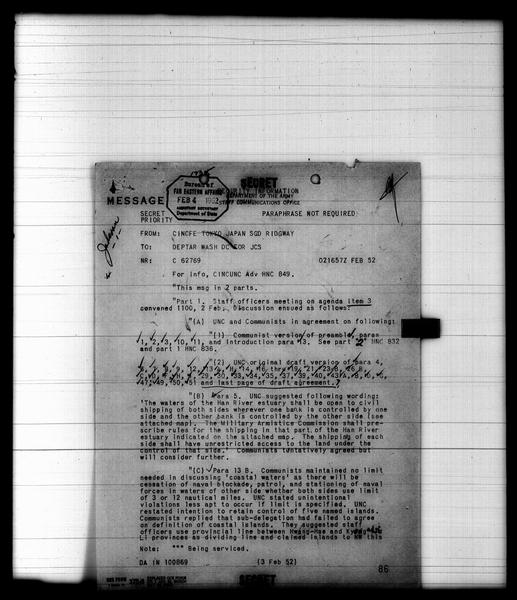 SECRET
Bureau of
FAR EASTERN AFFAIRS
FEB 4 1952
Department of State
SECURITY INFORMATION
DEPARTMENT OF THE ARMY
STAFF COMMUNICATIONS OFFICE
MESSAGE
SECRET
PRIORITY
PARAPHRASE NOT REQUIRED
FROM: CINCFE TOKYO JAPAN SGD RIDGWAY
TO: DEPTAR WASH DC FOR JCS
NR: C 62769 021657Z FEB 52
For info, CINCUNC Adv HNC 849.
"This msg in 2 parts.
"Part 1. Staff officers meeting on agenda item 3
convened 1100, 2 Feb. Discussion ensued as follows:
"(A) UNC and Communists in agreement on following:
"(1) Communist version of preamble, paras
1, 2, 3, 10, 11, and introduction para 13. See part 2 HNC 832
and part 1 HNC 836.
"(2) UNC original draft version of para 4,
41, 49, 50, 51 and last page of draft agreement.
"(B) Para 5. UNC suggested following wording:
'The waters of the Han River estuary shall be open to civil
shipping of both sides wherever one bank is controlled by one
side and the other bank is controlled by the other side (see
attached map). The Military Armistice Commission shall pre-
scribe rules for the shipping in that part of the Han River
estuary indicated on the attached map. The shipping of each
side shall have unrestricted access to the land under the
control of that side.' Communists tentatively agreed but
will consider further.
"(C) Para 13 B. Communists maintained no limit
needed in discussing 'coastal waters' as there will be
cessation of naval blockade, patrol, and stationing of naval
forces in waters of other side whether both sides use limit
of 3 or 12 nautical miles. UNC stated unintentional
violations less apt to occur if limit is specified. UNC
restated intention to retain control of five named islands.
Communists replied that sub-delegation had failed to agree
on definition of coastal islands. They suggested staff
officers use provincial line between Hwang-Hae and
Li provinces as dividing line and claimed islands to NW this
Note: *** Being serviced.
DA IN 100869 (3 Feb 52)
86
SECRET